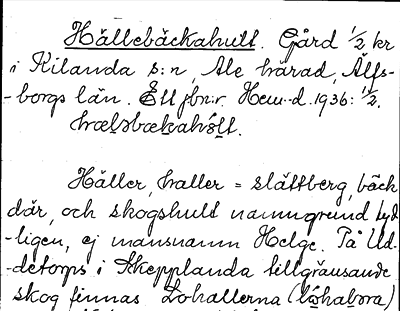 Hällebäckahult. Gård 1/2 kr
i Kilanda s:n, Ale härad, Älfs-
-borgs län. Ett jbnr. Hem-d. 1936: 1/2.
hælsbækahòlt.
Häller, haller = slättberg, bäck
där, och skogshult namngrund tyd-
-ligen, ej mansnamn Helge. På Ud-
-detorps i Skepplanda tillgränsande
skog finnas Lohallerna